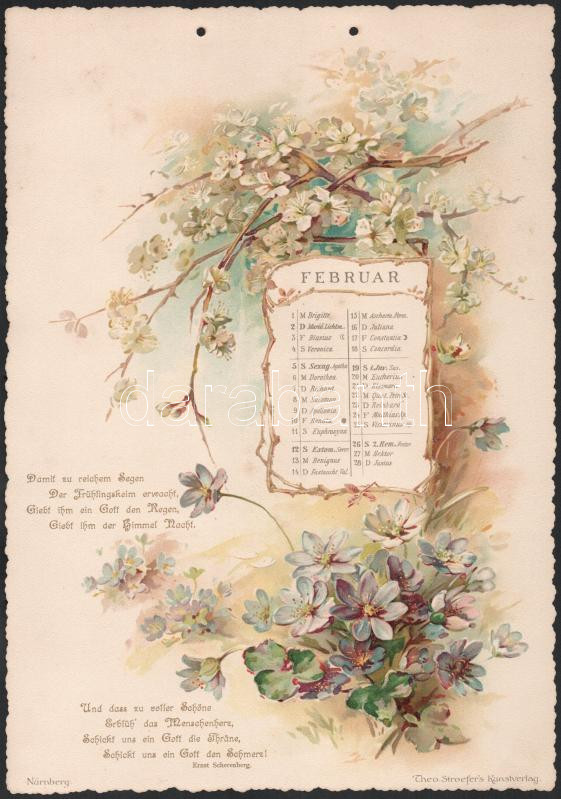 FEBRUAR
1 M Brigitte
2 D Mariä Lichtm.
3 F Blasius
4 S Veronica
5 S Sexag. Agatha
6 M Dorothea
7 D Richard
8 M Salomon
9 D Apollonia
10 F Renata
11 S Euphrosyna
12 S Estom. Sever.
13 M Benignus
14 D Fastnacht Val.
15 M Ascherm.
16 D Juliana
17 F Constantia
18 S Concordia
19 S 1. Inv. Sus.
20 M Eucherius
21 D
22 M Quat.
23 D Reinhard
24 F Matthias
25 S Victorinus
26 S 2. Rem. Nestor
27 M Hektor
28 D Justus
Damit zu reichem Segen
Der Frühlingskeim erwacht,
Giebt ihm ein Gott den Regen,
Giebt ihm der Himmel Nacht.
Und dass zu voller Schöne
Erblüh' das Menschenherz,
Schickt uns ein Gott die Thräne,
Schickt uns ein Gott den Schmerz!
Ernst Scherenberg.
Nürnberg.
Theo. Stroefer's Kunstverlag.
darabanth